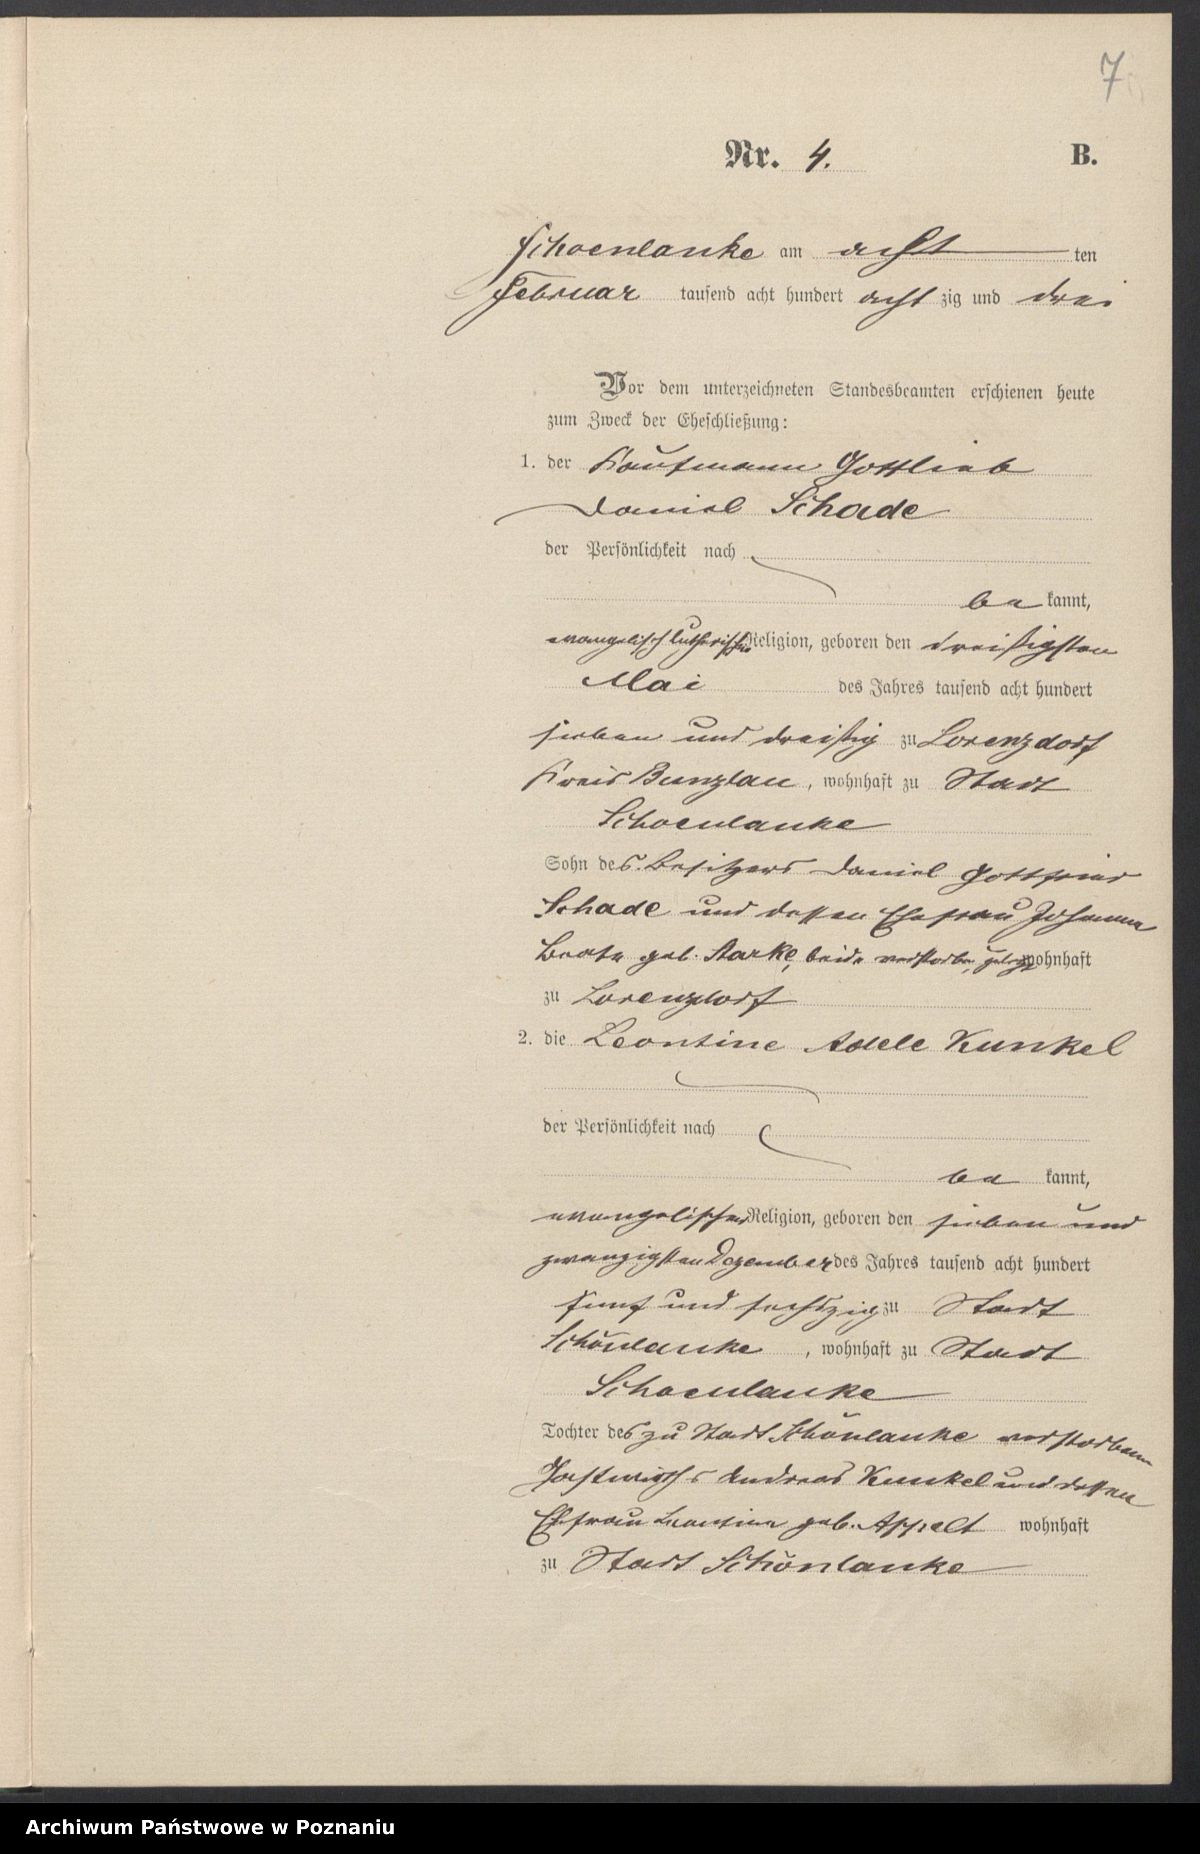 7
Nr. 4. B.
Schoenlanke am acht ten
Februar tausend acht hundert acht zig und drei
Vor dem unterzeichneten Standesbeamten erschienen heute
zum Zweck der Eheschließung:
1. der Kaufmann Gottlieb
Daniel Schade
der Persönlichkeit nach
be kannt,
evangelisch lutherischer Religion, geboren den dreißigsten
Mai des Jahres tausend acht hundert
sieben und dreißig zu Lorenzdorf
Kreis Bunzlau, wohnhaft zu Stadt
Schoenlanke
Sohn des Besitzers Daniel Gottfried
Schade und dessen Ehefrau Johanne
Beate geb. Starke, beide verstorben, wohnhaft
zu Lorenzdorf
2. die Leontine Adele Kunkel
der Persönlichkeit nach
be kannt,
evangelischer Religion, geboren den sieben und
zwanzigsten Dezember des Jahres tausend acht hundert
fünf und sechszig zu Stadt
Schönlanke, wohnhaft zu Stadt
Schoenlanke
Tochter des zu Stadt Schönlanke verstorbenen
Gastwirths Andreas Kunkel und dessen
Ehefrau Leontine geb. Appelt wohnhaft
zu Stadt Schönlanke
Archiwum Państwowe w Poznaniu